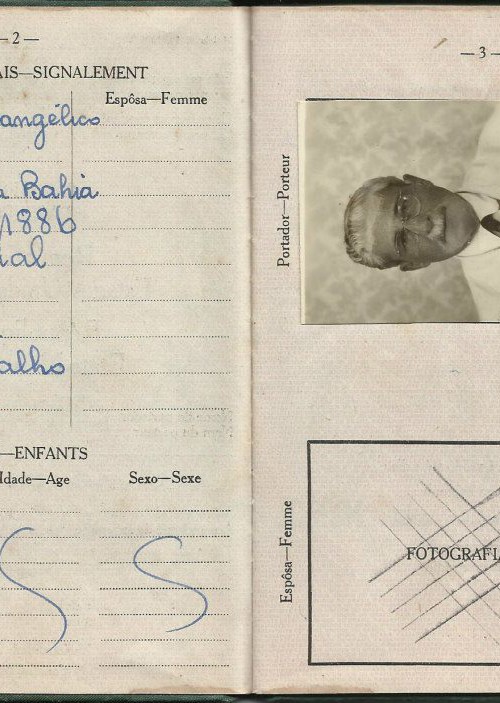 —2—
AIS—SIGNALEMENT
Espôsa—Femme
angélico
a Bahia
1886
ial
alho
—ENFANTS
Idade—Age
Sexo—Sexe
—3—
Portador—Porteur
Espôsa—Femme
FOTOGRAFI